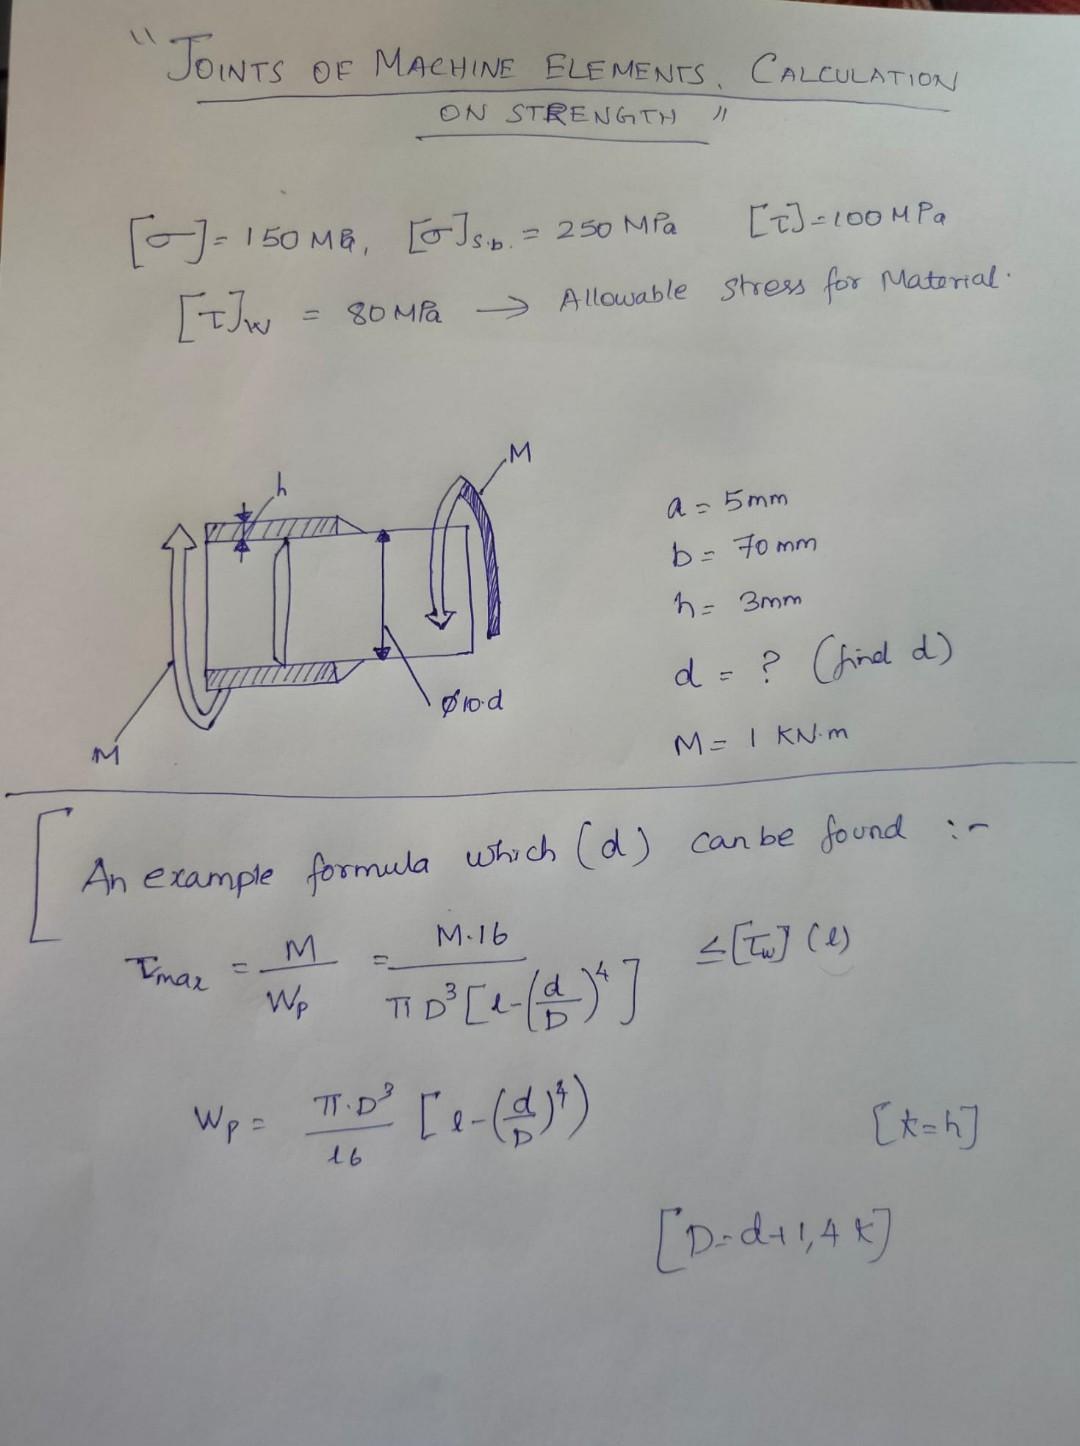 "JOINTS OF MACHINE ELEMENTS. CALCULATION
ON STRENGTH"
[σ] = 150 MPa, [σ]s.b. = 250 MPa [τ] = 100 MPa
[τ]w = 80 MPa → Allowable stress for Material.
h
M
a = 5mm
b = 70 mm
h = 3mm
d = ? (find d)
M = 1 KN.m
Ø10.d
M
An example formula which (d) can be found :-
τmax = M/Wp = M.16/πD³[1-(d/D)⁴] ≤ [τw] (1)
Wp = π.D³/16 [1-(d/D)⁴)
[t=h]
[D=d+1,4 t]